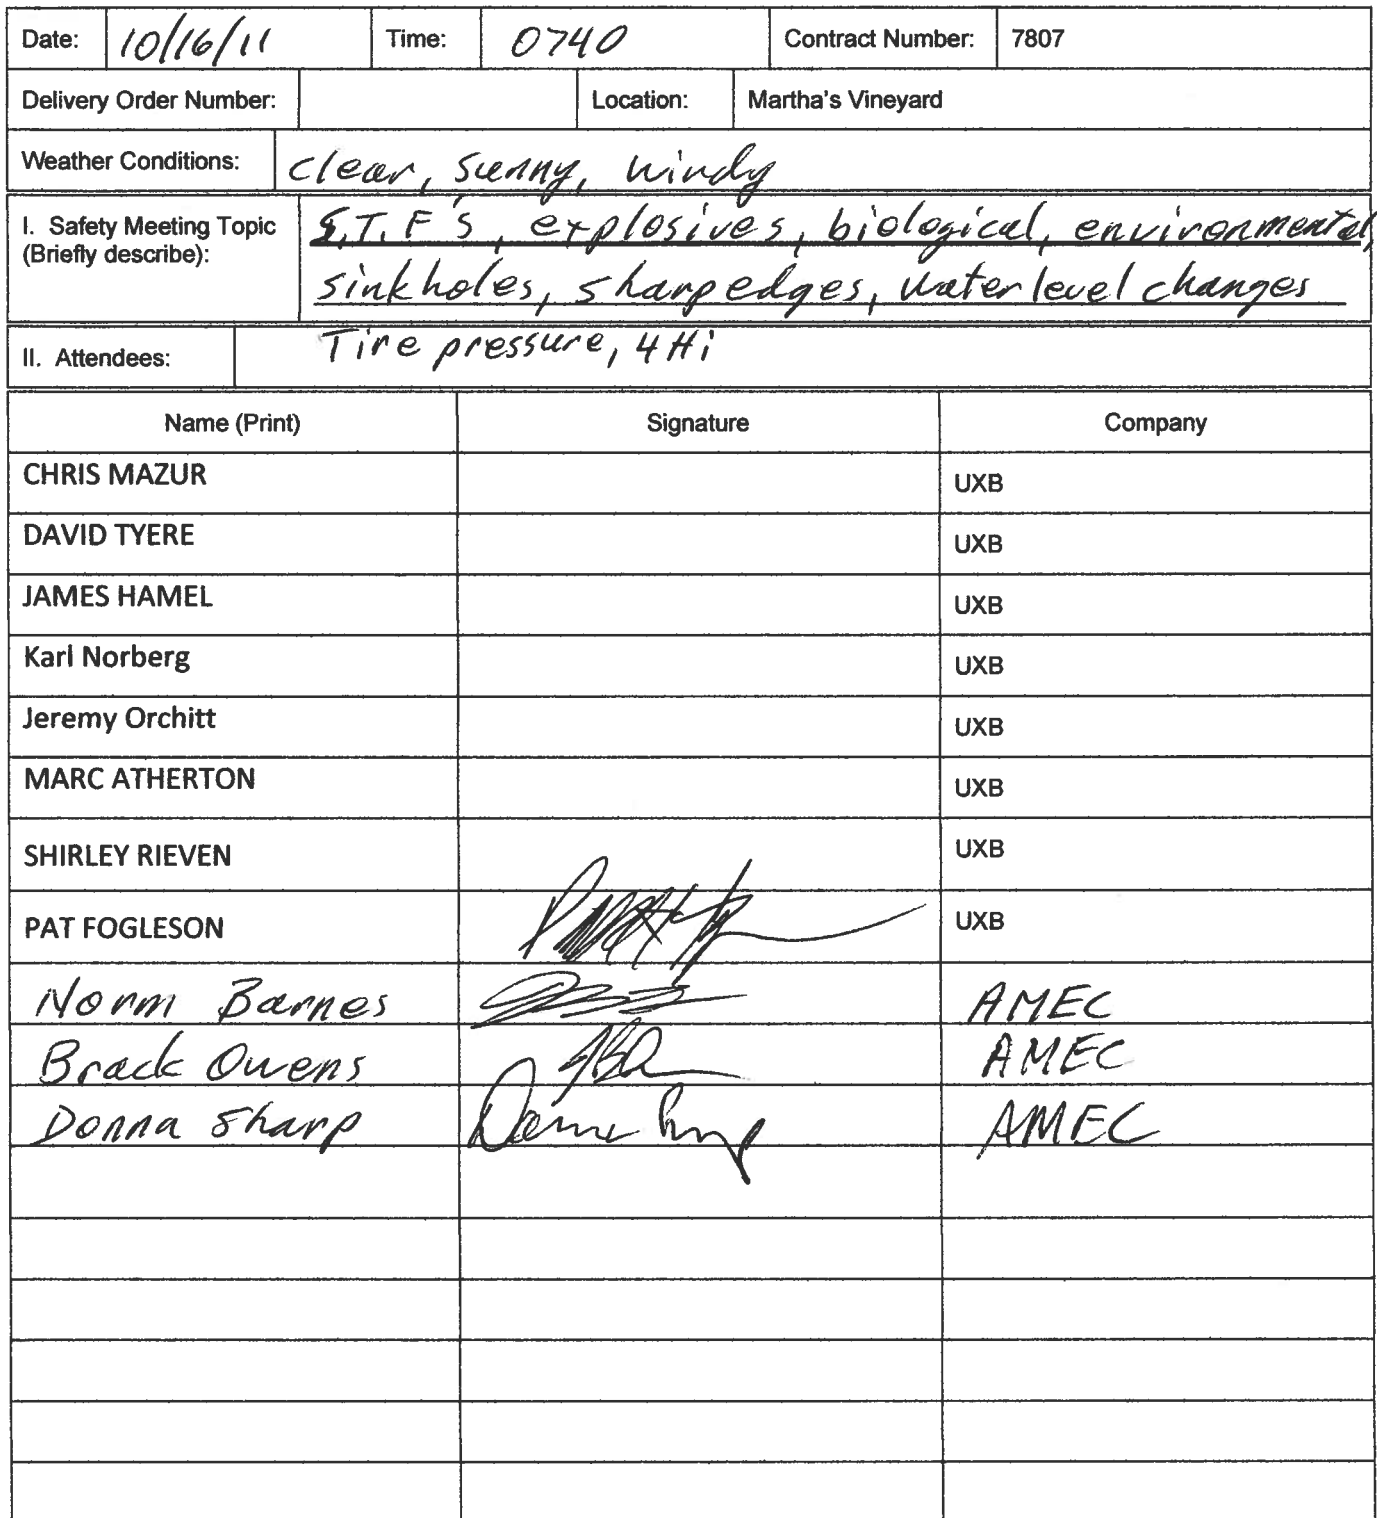 Date: 10/16/11 Time: 0740 Contract Number: 7807
Delivery Order Number: Location: Martha's Vineyard
Weather Conditions: clear, sunny, windy
I. Safety Meeting Topic
(Briefly describe):
S.T.F's, explosives, biological, environmental,
sinkholes, sharp edges, water level changes
Tire pressure, 4 Hi
II. Attendees:
Name (Print) Signature Company
CHRIS MAZUR UXB
DAVID TYERE UXB
JAMES HAMEL UXB
Karl Norberg UXB
Jeremy Orchitt UXB
MARC ATHERTON UXB
SHIRLEY RIEVEN UXB
PAT FOGLESON UXB
Norm Barnes AMEC
Brack Owens AMEC
Donna Sharp AMEC